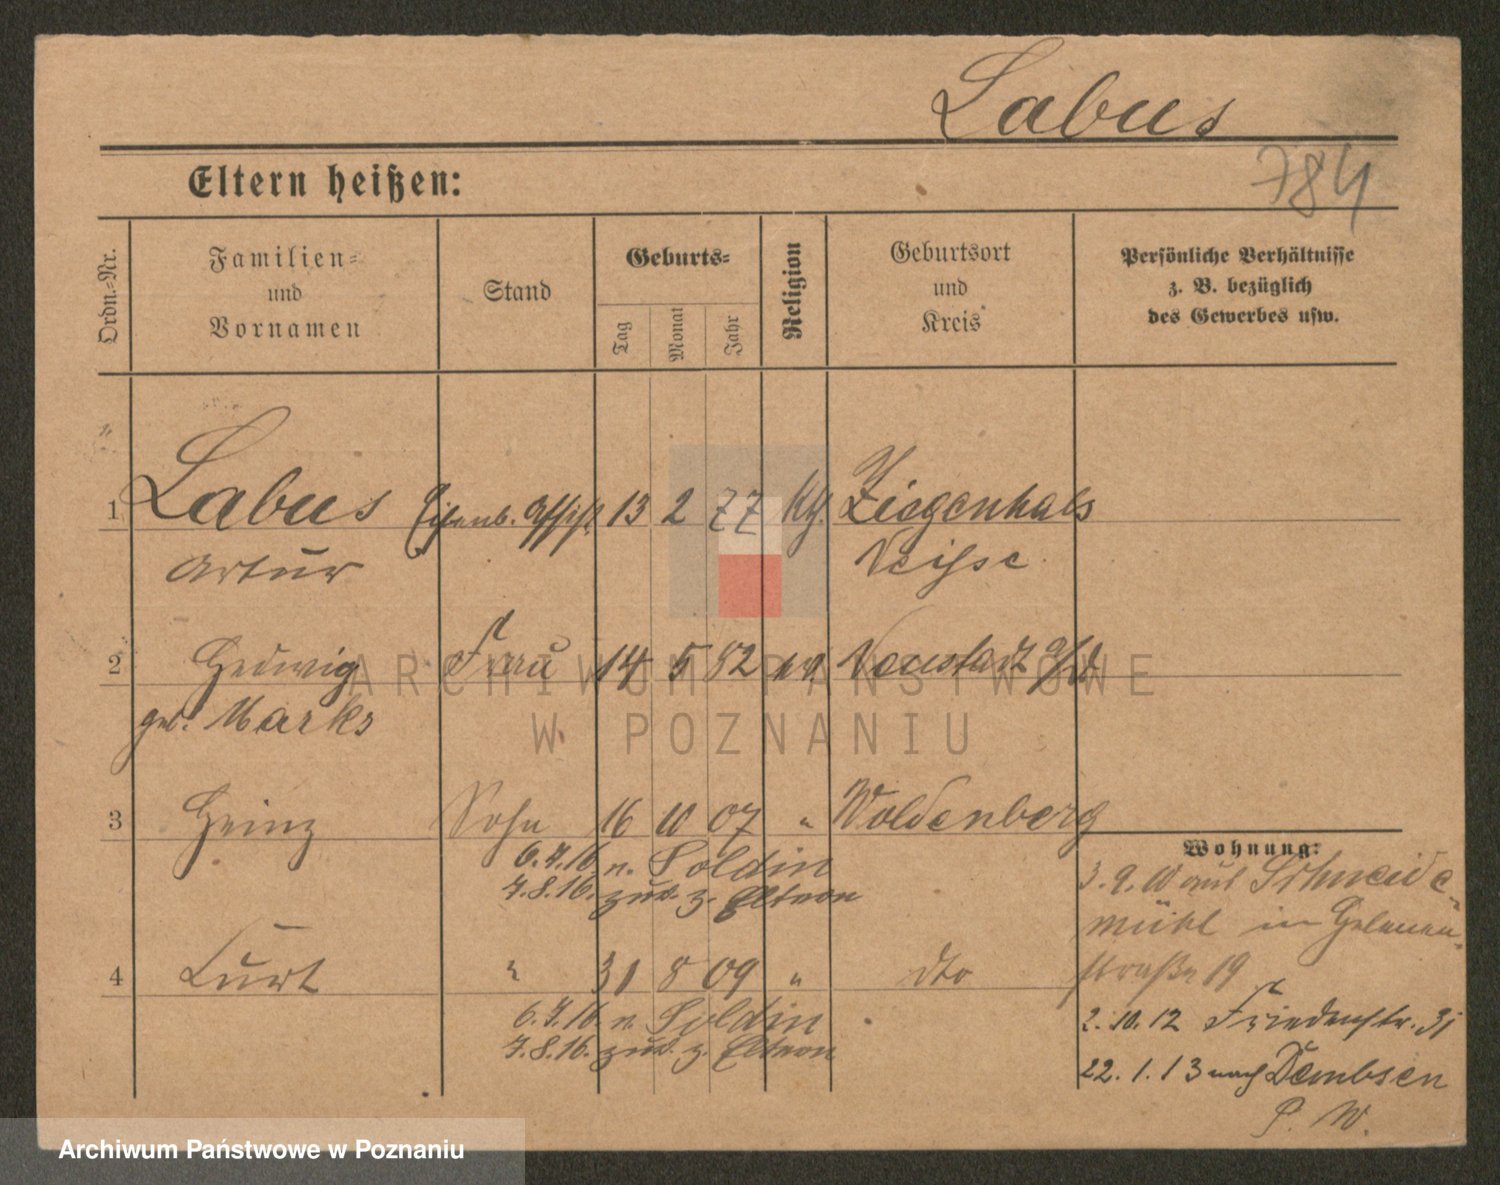 Labus
784
Eltern heißen:
Ordn.-Nr.
Familien-
und
Vornamen
Stand
Geburts-
Tag
Monat
Jahr
Religion
Geburtsort
und
Kreis
Persönliche Verhältnisse
z. B. bezüglich
des Gewerbes usw.
1 Labus Eisenb. Assist. 13 2 77 Kth. Ziegenhals
Artur Neisse
2 Hedwig Frau 14 5 82 Neustadt
geb. Marks
3 Heinz Sohn 16 10 07 " Woldenberg
6.7.16 n. Soldin
7.8.16. zur. z. Eltern
4 Kurt " 31 8 09 " dto
6.7.16 n. Soldin
7.8.16. zur. z. Eltern
Wohnung:
3.9.10 aus Schneide-
mühl in
straße 19
2.10.12 Friedenstr. 31
22.1.13 nach Dembsen
P. W.
ARCHIWUM PAŃSTWOWE
W POZNANIU
Archiwum Państwowe w Poznaniu